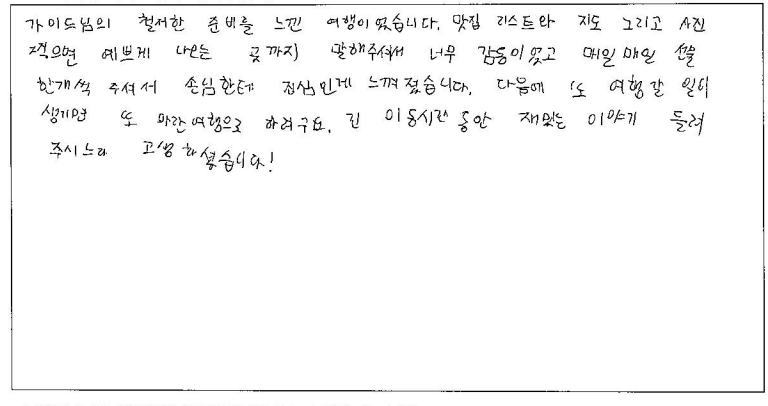 가이드님의 철저한 준비를 느낀 여행이었습니다. 맛집 리스트와 지도 그리고 사진
찍으면 예쁘게 나오는 곳까지 말해주셔서 너무 감동이었고 매일매일 선물
한개씩 주셔서 손님한테 진심인게 느껴졌습니다. 다음에 또 여행갈 일이
생기면 또 마란여행으로 하려구요. 긴 이동시간 동안 재밌는 이야기 들려
주시느라 고생하셨습니다!